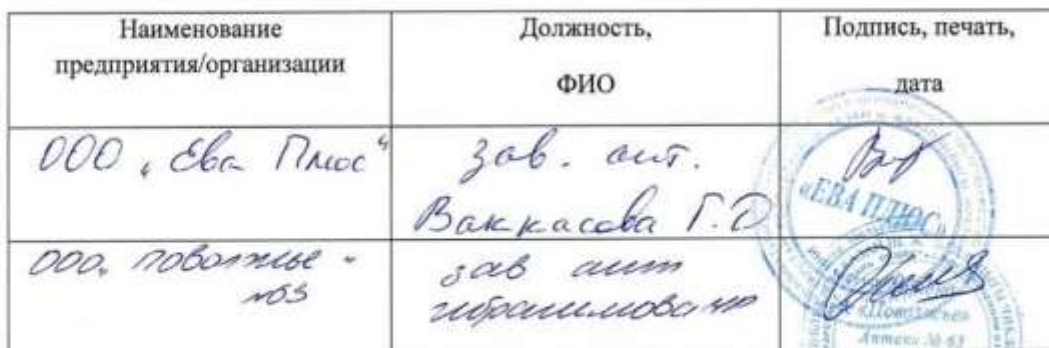 Наименование
предприятия/организации
Должность,
ФИО
Подпись, печать,
дата
ООО „Ева Плюс“
зав. апт.
Ваккасова Г.Ф
«ЕВА ПЛЮС»
ООО „Поволжье -
№63
зав апт
«Поволжье»
Аптека № 63